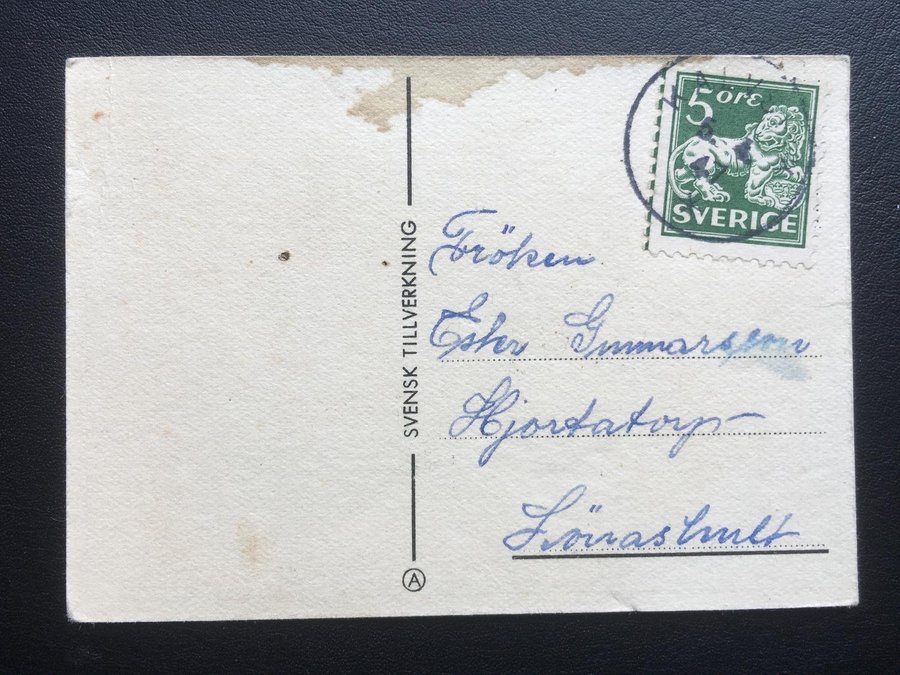 5 öre
SVERIGE
SVENSK TILLVERKNING
A
Fröken
Ester Gunnarsson
Hjortatorp
Lönashult